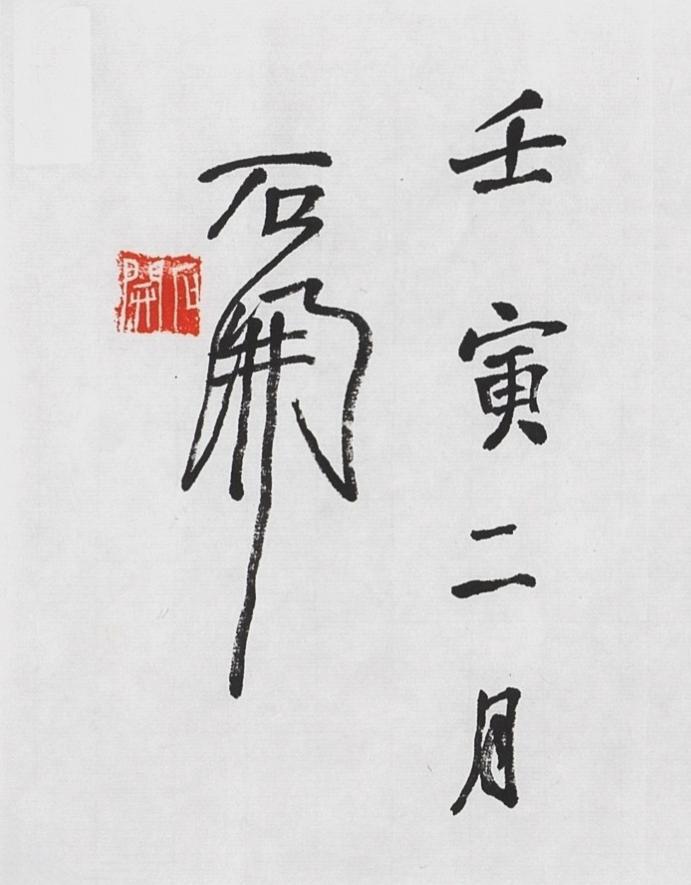 壬寅二月
石開
石開